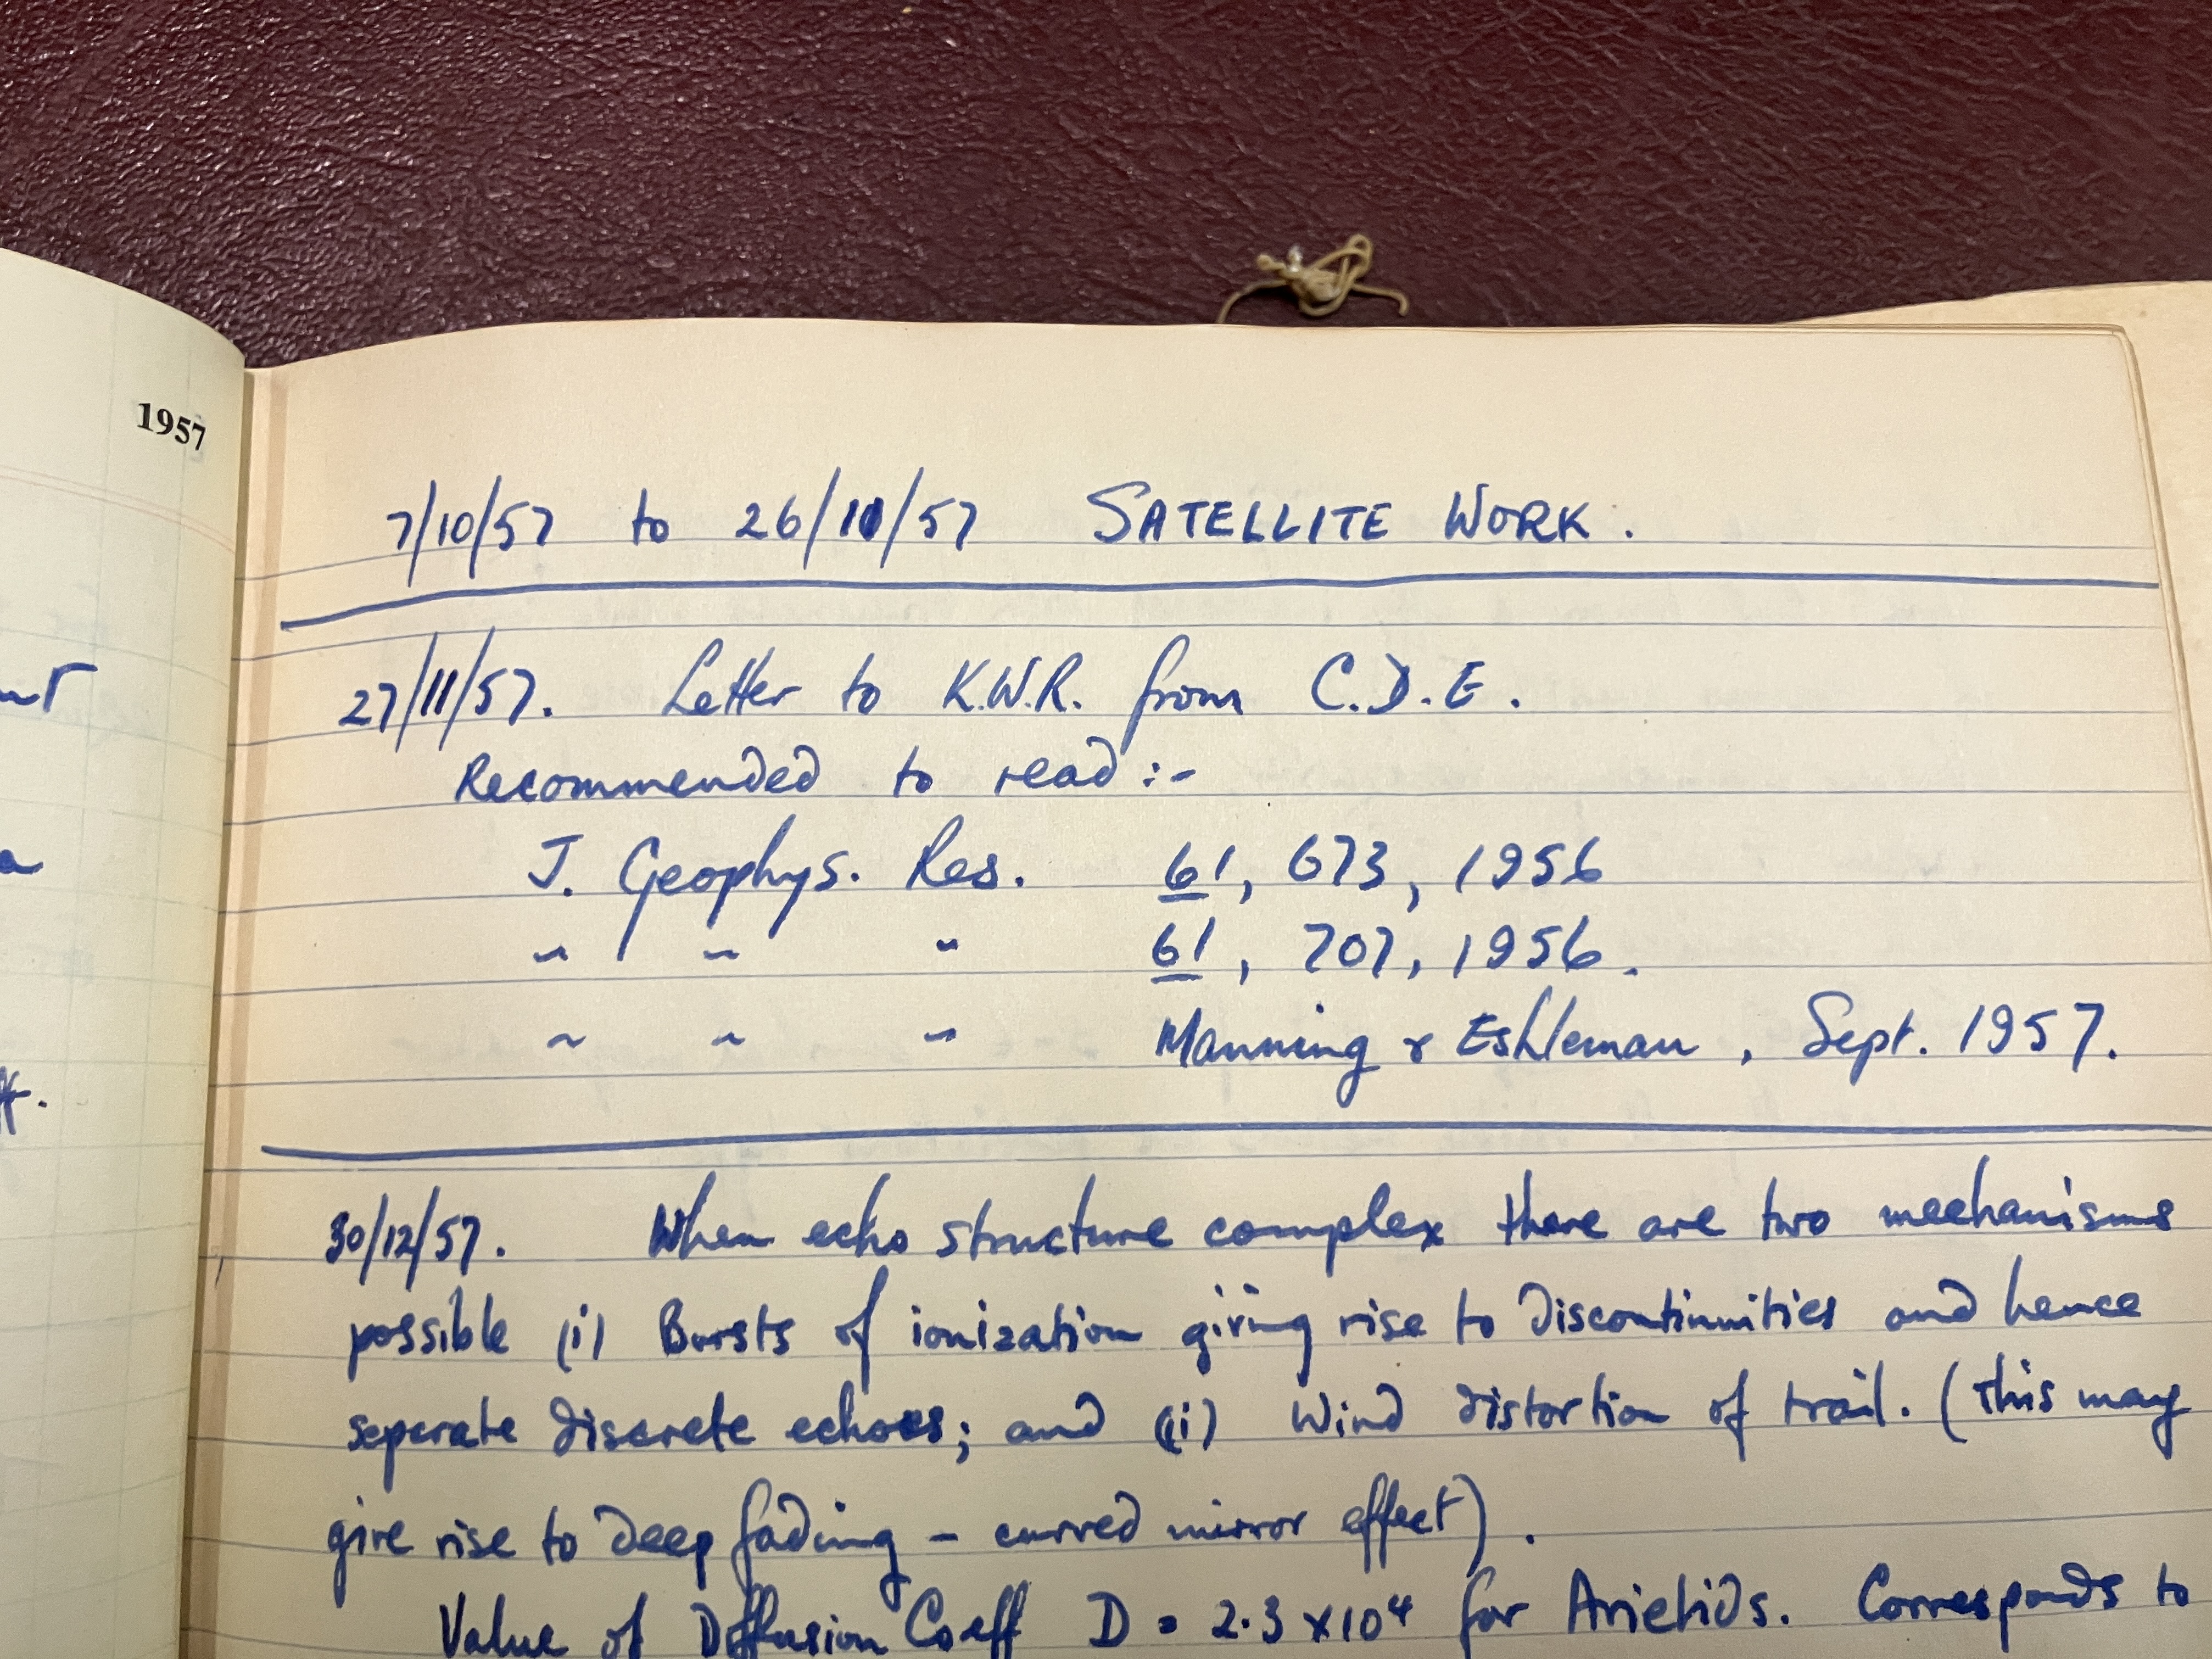 1957
7/10/57 to 26/11/57 SATELLITE WORK.
27/11/57. Letter to K.W.R. from C.D.E.
Recommended to read :-
J. Geophys. Res. 61, 673, 1956
" " " 61, 707, 1956.
" " " Manning & Eshleman, Sept. 1957.
30/12/57. When echo structure complex there are two mechanisms
possible (i) Bursts of ionization giving rise to discontinuities and hence
seperate discrete echoes; and (ii) Wind distortion of trail. (this may
give rise to deep fading - curved mirror effect).
Value of Diffusion Coeff D = 2.3 x 10⁴ for Arietids. Corresponds to